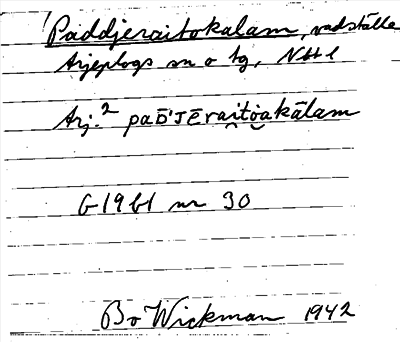 Paddjeraitokalam, vadställe
Arjeplogs sn o tg, Nbtl
Arj.² paᴅ̄'ᴊĒrai̭tŏ̭akālam
G 1961 nr 30
Bo Wickman 1942